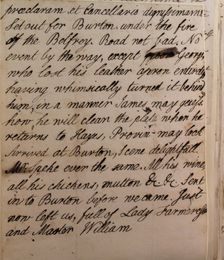 præclaram et Cancellaria dignissimam.
Set out for Burton, under the fire
off the Belfrey. Road not bad. No
event by the way, except Terry,
who lost his leather apron evening
having whimsically turned it behind
him, in a manner James may
how he will clean the plate when he
returns to Hays.
arrived at Burton, Scene delightfull
Spake ever the same. All his wine,
all his chickens, mutton &c &c Sent
in to Burton before we came. Just
now left us, full of Lady Farmer
and Marlow William